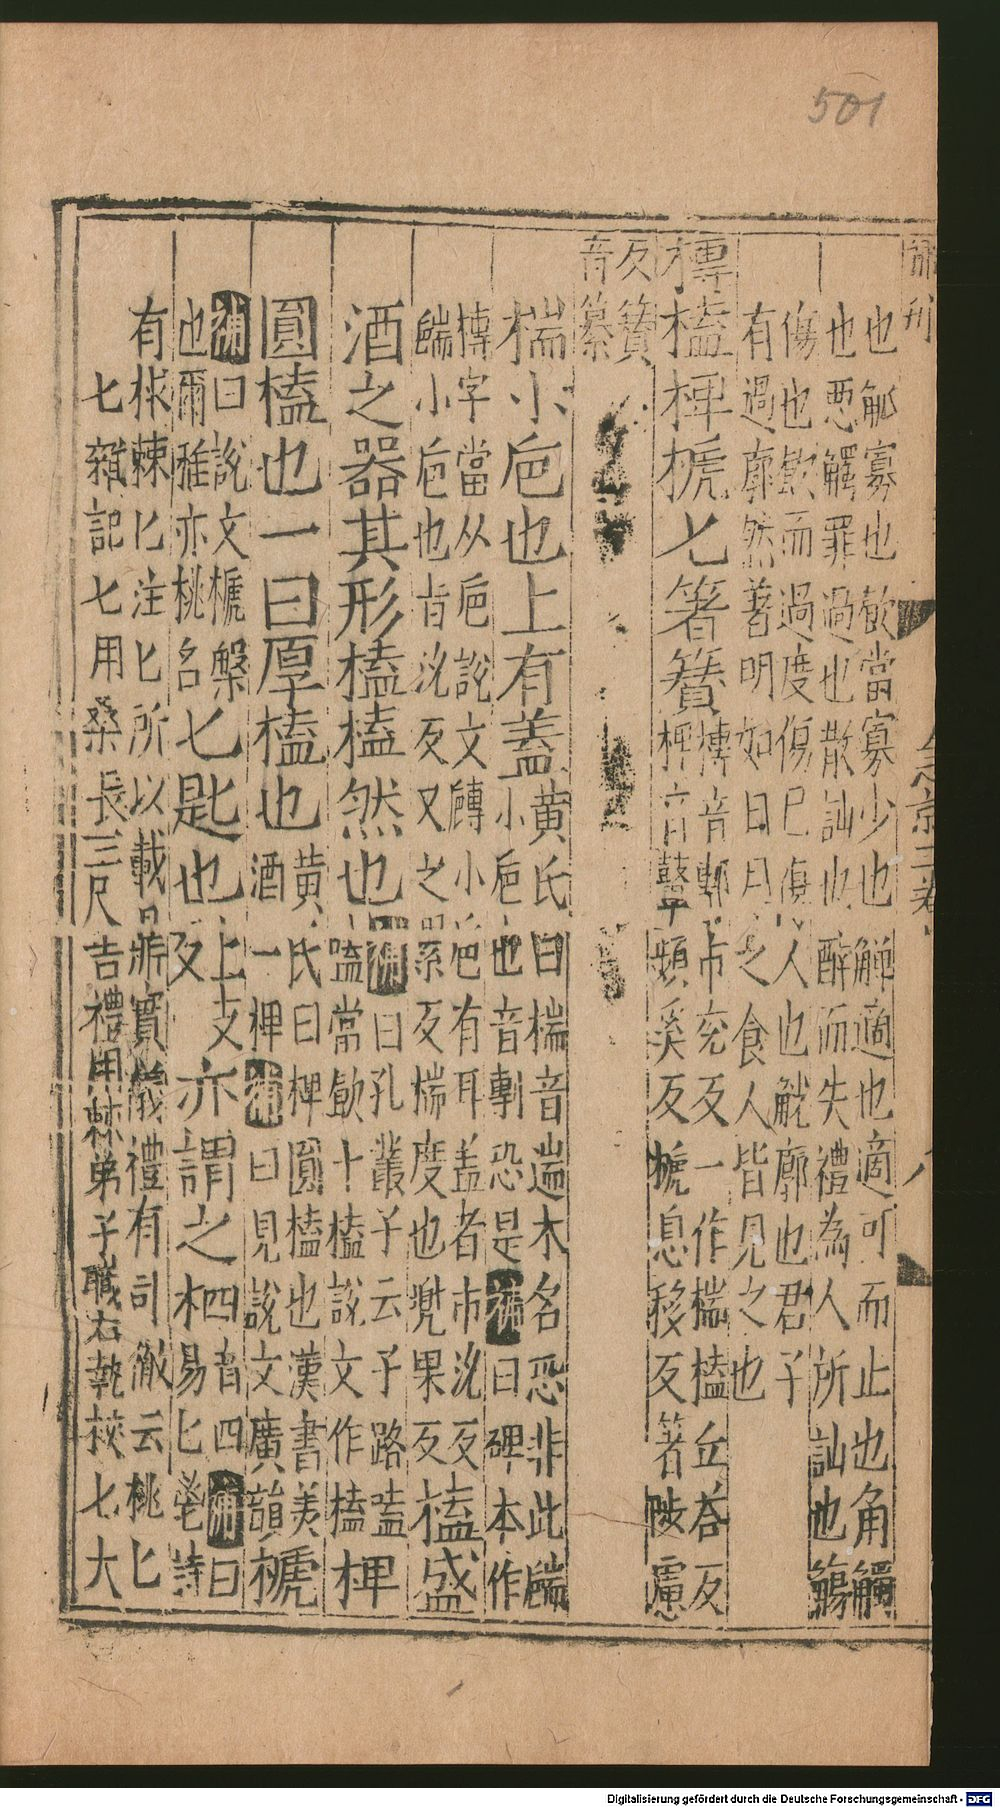 501
也觚寡也飲當寡少也觶適也適可而止也角觸
也惡觸罪過也散訕也醉而失禮為人所訕也觴
傷也飲而過度傷己傷人也觥廓也君子
有過廓然著明如日月之食人皆見之也
槫榼椑榹匕箸籫
槫音鄟市兖反一作椯榼丘盍反
椑音鼙頻奚反榹息移反著陟慮
反籫
音纂
椯小巵也上有蓋
黄氏曰椯音遄木名恐非此䭕
小巵也音剸恐是補曰碑本作
槫字當从巵說文䭕小巵有耳蓋者市沇反
䭕小巵也旨沇反又之累反椯度也兜果反
榼盛
酒之器其形榼榼然也
補曰孔叢子云子路嗑
嗑當飲十榼說文作榼
椑
圓榼也一曰厚榼也
黄氏曰椑圓榼也漢書美
酒一椑補曰見說文廣韻
榹
補曰說文榹槃
也爾雅亦桃名
匕匙也
上支
反
亦謂之柶
音四補曰
易匕鬯詩
有捄棘匕注匕所以載鼎實儀禮有司徹云桃匕
匕雜記匕用桑長三尺吉禮用棘弟子職右執挾匕大
急就三卷
八
Digitalisierung gefördert durch die Deutsche Forschungsgemeinschaft - DFG